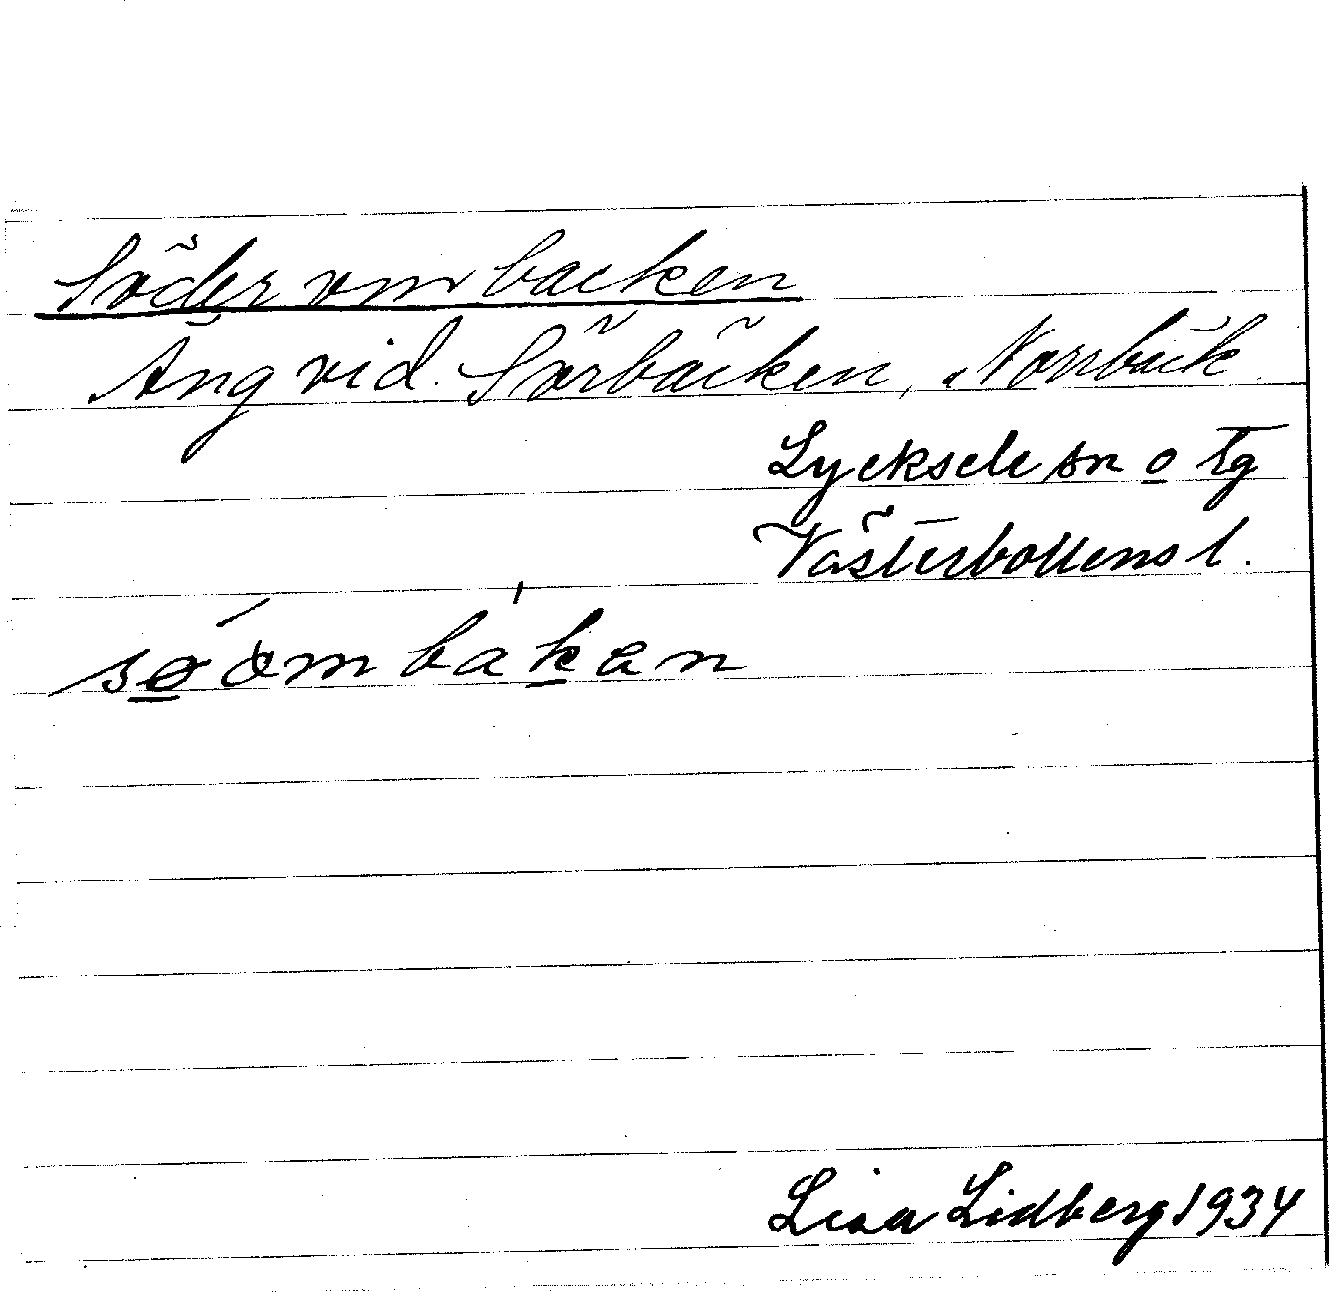 Söder om backen
Äng vid Sörbäcken, Norrbäck
Lycksele sn o tg
Västerbottens l.
søòmbakan
Lisa Lidberg 1934